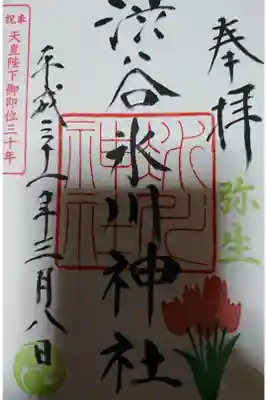 奉拝
弥生
渋谷氷川神社
氷川
神社
平成三十一年三月八日
奉祝
天皇陛下御即位三十年